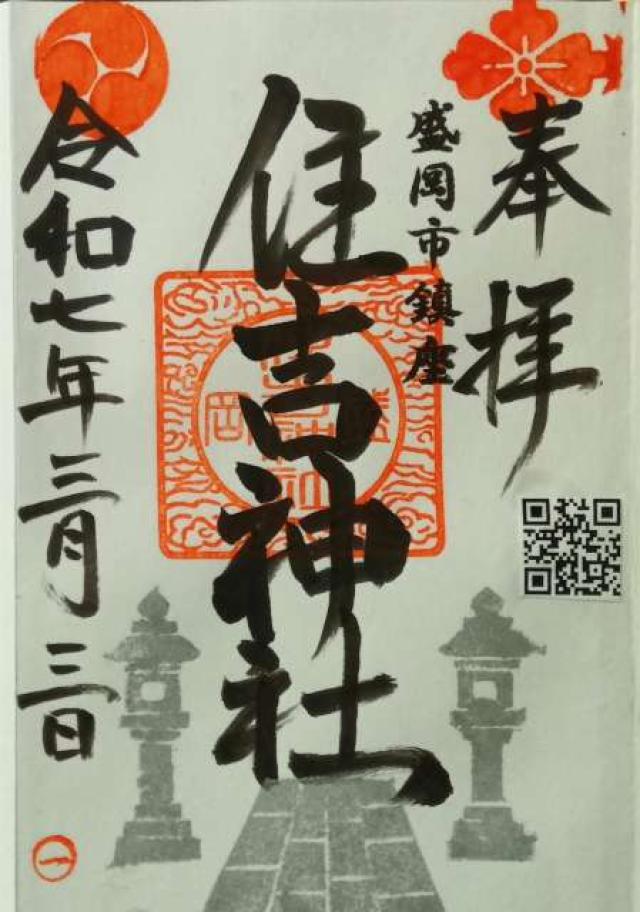 奉拝
盛岡市鎮座
住吉神社
令和七年三月三日
一